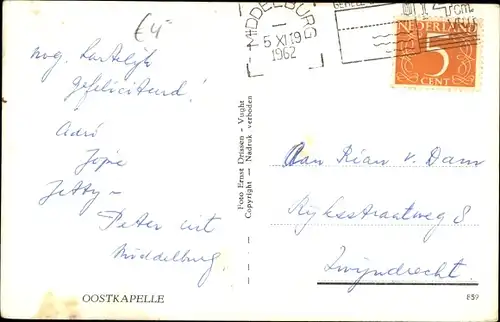 €4
MIDDELBURG
5 XI 19
1962
NEDERLAND
5
CENT
nog hartelijk
gefeliciteerd!
Adri
Jopie
Jetty
Peter uit
Middelburg.
Foto Ernst Drissen - Vught
Copyright — Nadruk verboden
Aan Rian v. Dam
Rijksstraatweg 8
Zwijndrecht.
OOSTKAPELLE
859